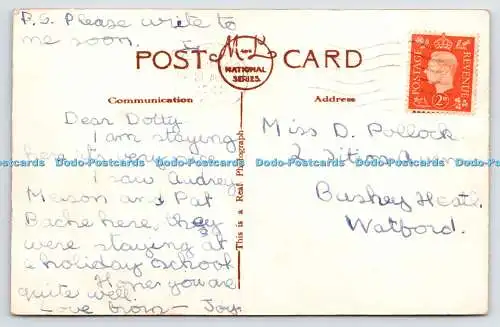 P.S. Please write to
me soon.
POST CARD
M&L
NATIONAL
SERIES
Communication
Address
POSTAGE
REVENUE
2D
Dear Dotty
I am staying
here
I saw Audrey
Meison and Pat
Bache here, they
were staying at
a holiday school
Hope you are
quite well.
Love from - Joy.
This is a Real Photograph
Miss D. Pollock
2
Bushey Heath
Watford.
Dodo-Postcards Dodo-Postcards Dodo-Postcards Dodo-Postcards Dodo-Postcards